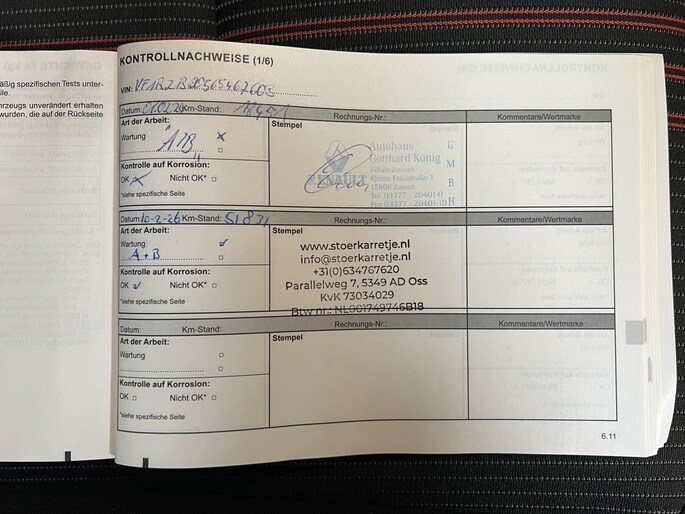 äßig spezifischen Tests unter-
ile.
hrzeugs unverändert erhalten
wurden, die auf der Rückseite
KONTROLLNACHWEISE (1/6)
VIN:
Datum: Km-Stand: Rechnungs-Nr.: Kommentare/Wertmarke
Art der Arbeit:
Wartung
A+B
Kontrolle auf Korrosion:
OK Nicht OK*
*siehe spezifische Seite
Stempel
RENAULT
Autohaus G
Gotthard König
Filiale Zossen M
15806 Zossen B
Tel. 03377 / 20401-0
Fax 03377 / 20401-10 H
Datum: 10-2-26 Km-Stand: 51831 Rechnungs-Nr.: Kommentare/Wertmarke
Art der Arbeit:
Wartung
A+B
Kontrolle auf Korrosion:
OK Nicht OK*
*siehe spezifische Seite
Stempel
www.stoerkarretje.nl
info@stoerkarretje.nl
+31(0)634767620
Parallelweg 7, 5349 AD Oss
KvK 73034029
Btw nr.: NL001749746B18
Datum: Km-Stand: Rechnungs-Nr.: Kommentare/Wertmarke
Art der Arbeit:
Wartung
Kontrolle auf Korrosion:
OK Nicht OK*
*siehe spezifische Seite
Stempel
6.11